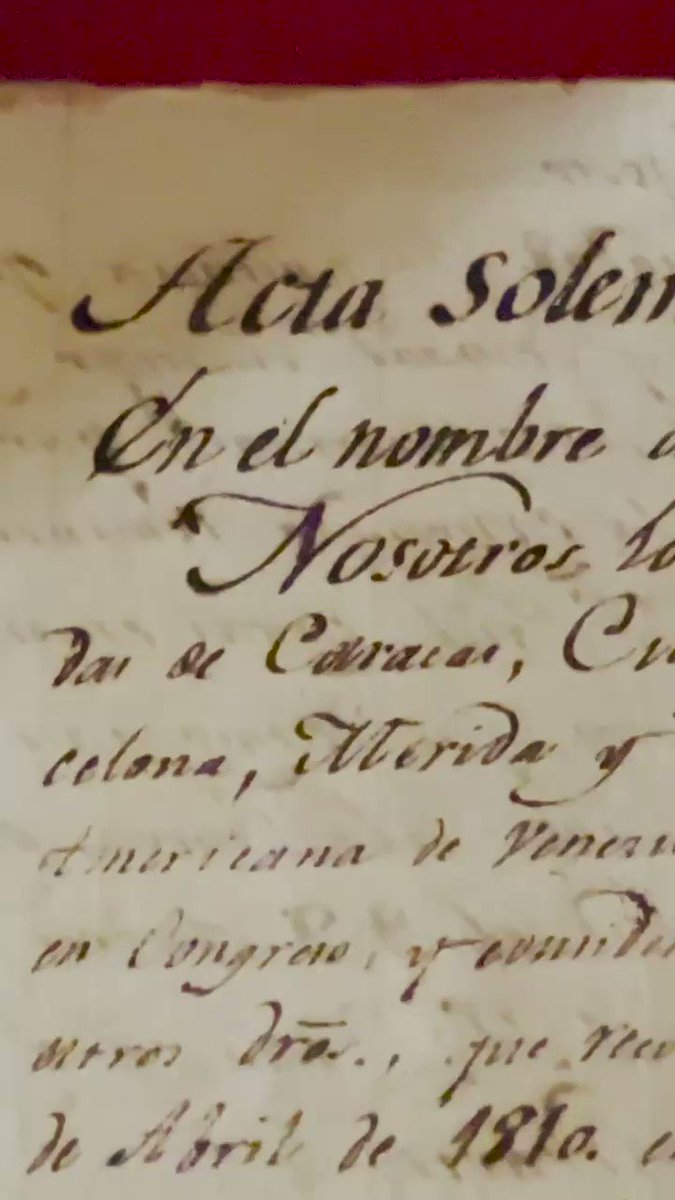 Acta solem
En el nombre d
Nosotros lo
das de Caracas, Cu
celona, Merida y
Americana de Venezu
en Congreso, y conside
otros dros., que reco
de Abril de 1810. e